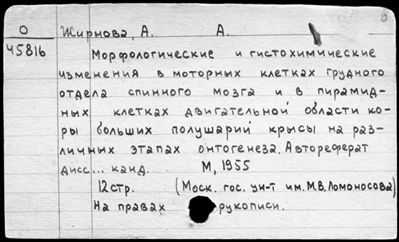 О Жирнова, А. А.
45816 Морфологические и гистохимические
изменения в моторных клетках грудного
отдела спинного мозга и в пирамид-
ных клетках двигательной области ко-
ры больших полушарий крысы на раз-
личных этапах онтогенеза. Автореферат
дисс... канд. М, 1955
12стр. (Моск. гос. ун-т им. М.В. Ломоносова)
На правах рукописи.